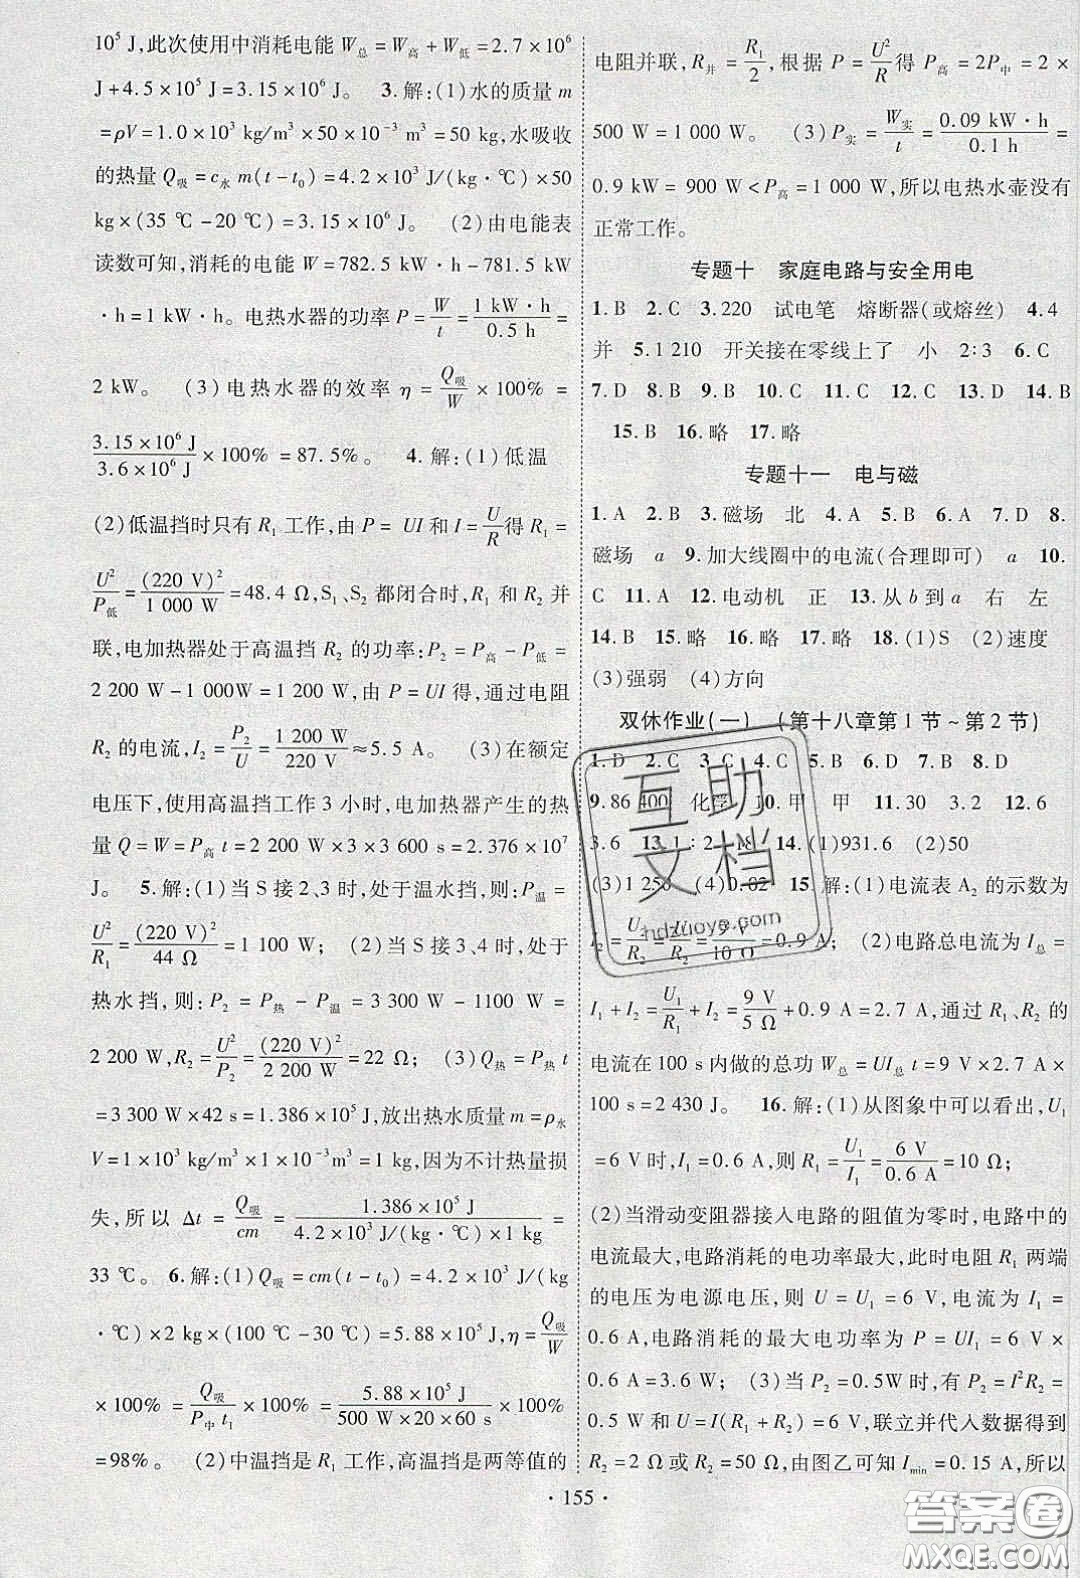 10⁵ J,此次使用中消耗电能 W总=W高+W低=2.7×10⁶
J+4.5×10⁵ J=3.15×10⁶ J。 3.解:(1)水的质量 m
=ρV=1.0×10³ kg/m³×50×10⁻³ m³=50 kg,水吸收
的热量 Q吸=c水 m(t-t₀)=4.2×10³ J/(kg·℃)×50
kg×(35 ℃-20 ℃)=3.15×10⁶ J。 (2)由电能表
读数可知,消耗的电能 W=782.5 kW·h-781.5 kW
·h=1 kW·h。电热水器的功率 P=W/t=1 kW·h/0.5 h=
2 kW。 (3)电热水器的效率 η=Q吸/W×100%=
3.15×10⁶ J/3.6×10⁶ J×100%=87.5%。 4.解:(1)低温
(2)低温挡时只有 R₁ 工作,由 P=UI 和 I=U/R得 R₁=
U²/P低=(220 V)²/1 000 W=48.4 Ω,S₁、S₂ 都闭合时,R₁ 和 R₂ 并
联,电加热器处于高温挡 R₂ 的功率:P₂=P高-P低=
2 200 W-1 000W=1 200 W,由 P=UI 得,通过电阻
R₂ 的电流,I₂=P₂/U=1 200 W/220 V≈5.5 A。 (3)在额定
电压下,使用高温挡工作 3 小时,电加热器产生的热
量 Q=W=P高 t=2 200 W×3×3 600 s=2.376×10⁷
J。 5.解:(1)当 S 接 2、3 时,处于温水挡,则:P温=
U²/R₁=(220 V)²/44 Ω=1 100 W; (2)当 S 接 3、4 时,处于
热水挡,则:P₂=P热-P温=3 300 W-1100 W=
2 200 W,R₂=U²/P₂=(220 V)²/2 200 W=22 Ω; (3)Q热=P热 t
=3 300 W×42 s=1.386×10⁵ J,放出热水质量 m=ρ水
V=1×10³ kg/m³×1×10⁻³m³=1 kg,因为不计热量损
失,所以 Δt=Q吸/cm=1.386×10⁵ J/4.2×10³ J/(kg·℃)×1 kg=
33 ℃。 6.解:(1)Q吸=cm(t-t₀)=4.2×10³ J/(kg
·℃)×2 kg×(100 ℃-30 ℃)=5.88×10⁵ J,η=Q吸/W
×100%=Q吸/P中 t₁×100%=5.88×10⁵ J/500 W×20×60 s×100%
=98%。 (2)中温挡是 R₁ 工作,高温挡是两等值的
电阻并联,R并=R₁/2,根据 P=U²/R得 P高=2P中=2×
500 W=1 000 W。 (3)P实=W实/t=0.09 kW·h/0.1 h=
0.9 kW=900 W<P高=1 000 W,所以电热水壶没有
正常工作。
专题十 家庭电路与安全用电
1.B 2.C 3.220 试电笔 熔断器(或熔丝) 4.4
并 5.1 210 开关接在零线上了 小 2:3 6.C
7.D 8.B 9.B 10.C 11.C 12.C 13.D 14.B
15.B 16.略 17.略
专题十一 电与磁
1.A 2.B 3.磁场 北 4.A 5.B 6.A 7.D 8.
磁场 a 9.加大线圈中的电流(合理即可) a 10.
C 11.A 12.电动机 正 13.从 b 到 a 右 左
14.B 15.略 16.略 17.略 18.(1)S (2)速度
(3)强弱 (4)方向
双休作业(一) (第十八章第1节~第2节)
1.D 2.C 3.C 4.C 5.B 6.D 7.B 8.D
9.86 400 化学 10.甲 甲 11.30 3.2 12.6
3.6 13.1:2 18 14.(1)931.6 (2)50
(3)1 250 (4)0.02 15.解:(1)电流表 A₂ 的示数为
I₂=U₂/R₂=U/R₂=9 V/10 Ω=0.9 A; (2)电路总电流为 I总=
I₁+I₂=U₁/R₁+I₂=9 V/5 Ω+0.9 A=2.7 A,通过 R₁、R₂ 的
电流在 100 s 内做的总功 W总=UI总 t=9 V×2.7 A×
100 s=2 430 J。 16.解:(1)从图象中可以看出,U₁
=6 V 时,I₁=0.6 A,则 R₁=U₁/I₁=6 V/0.6 A=10 Ω;
(2)当滑动变阻器接入电路的阻值为零时,电路中的
电流最大,电路消耗的电功率最大,此时电阻 R₁ 两端
的电压为电源电压,则 U=U₁=6 V,电流为 I₁=
0.6 A,电路消耗的最大电功率为 P=UI₁=6 V×
0.6 A=3.6 W; (3)当 P₂=0.5W 时,有 P₂=I²R₂=
0.5 W 和 U=I(R₁+R₂)=6 V,联立并代入数据得到
R₂=2 Ω 或 R₂=50 Ω,由图乙可知 Imin=0.15 A,所以
·155·
互助文档
hdzuoye.com
答案圈
MXQE.COM